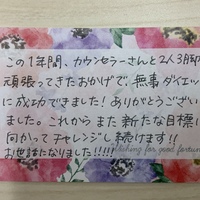 この1年間、カウンセラーさんと2人3脚
頑張ってきたおかげで、無事ダイエッ
に成功できました！ありがとうござい
ました。これからまた新たな目標に
向かってチャレンジし続けます!!
お世話になりました!!!!!
Wishing for good fortune